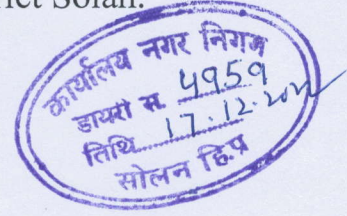 rict Solan.
कार्यालय नगर निगम
डायरी स. 4959
तिथि 17.12.2022
सोलन हि.प्र